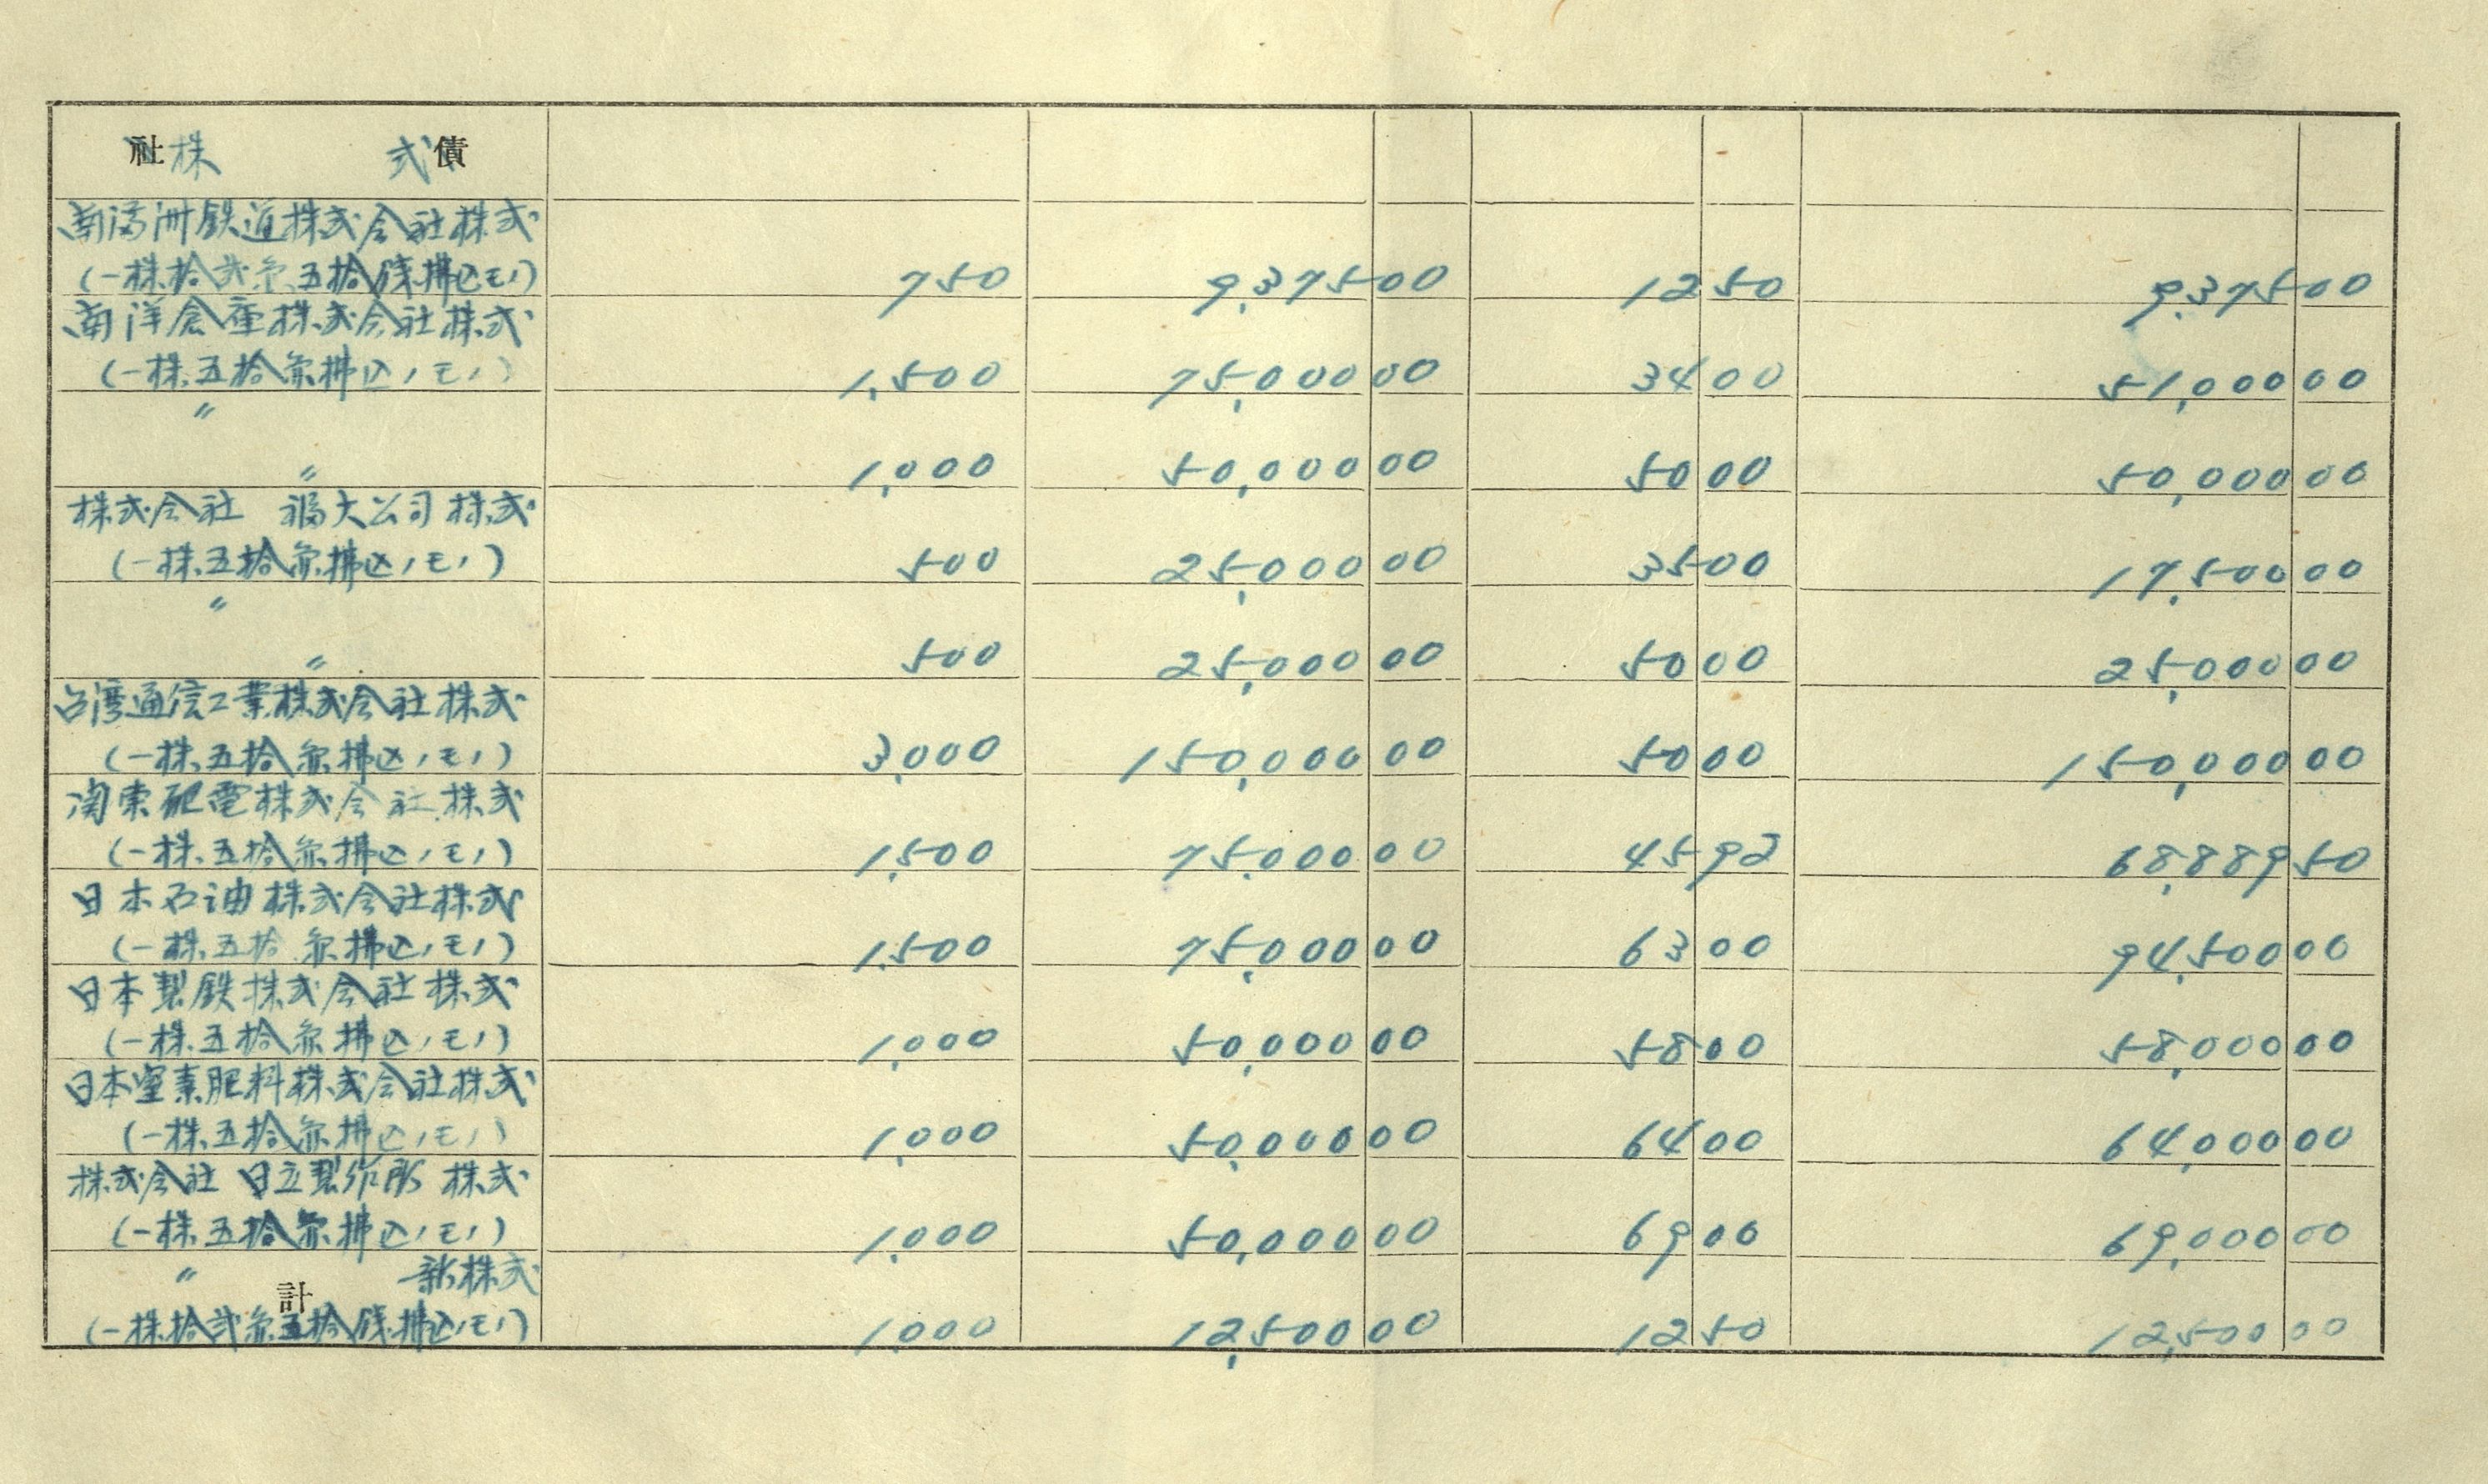 社株 式債
南満洲鉄道株式会社株式
(一株拾弐円五拾銭拂込モノ) 750 9,375 00 12 50 9,375 00
南洋倉庫株式会社株式
(一株五拾円拂込ノモノ) 1,500 75,000 00 34 00 51,000 00
〃
〃 1,000 50,000 00 50 00 50,000 00
株式会社 福大公司株式
(一株五拾円拂込ノモノ) 500 25,000 00 35 00 17,500 00
〃
〃 500 25,000 00 50 00 25,000 00
台湾通信工業株式会社株式
(一株五拾円拂込ノモノ) 3,000 150,000 00 50 00 150,000 00
関東配電株式会社株式
(一株五拾円拂込ノモノ) 1,500 75,000 00 45 92 68,889 50
日本石油株式会社株式
(一株五拾円拂込ノモノ) 1,500 75,000 00 63 00 94,500 00
日本製鉄株式会社株式
(一株五拾円拂込ノモノ) 1,000 50,000 00 58 00 58,000 00
日本窒素肥料株式会社株式
(一株五拾円拂込ノモノ) 1,000 50,000 00 64 00 64,000 00
株式会社 日立製作所 株式
(一株五拾円拂込ノモノ) 1,000 50,000 00 69 00 69,000 00
〃 新株式
計
(一株拾弐円五拾銭拂込ノモノ) 1,000 12,500 00 12 50 12,500 00